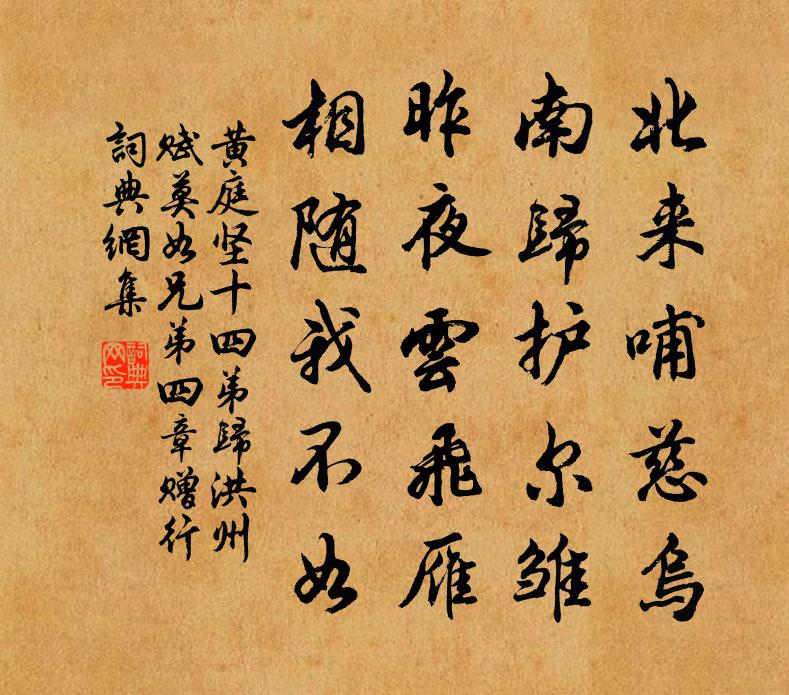 北来哺慈烏
南歸护尔雏
昨夜雲飛雁
相随我不如
黄庭坚十四弟歸洪州
赋莫如兄弟四章赠行
詞典網集
詞典
网印